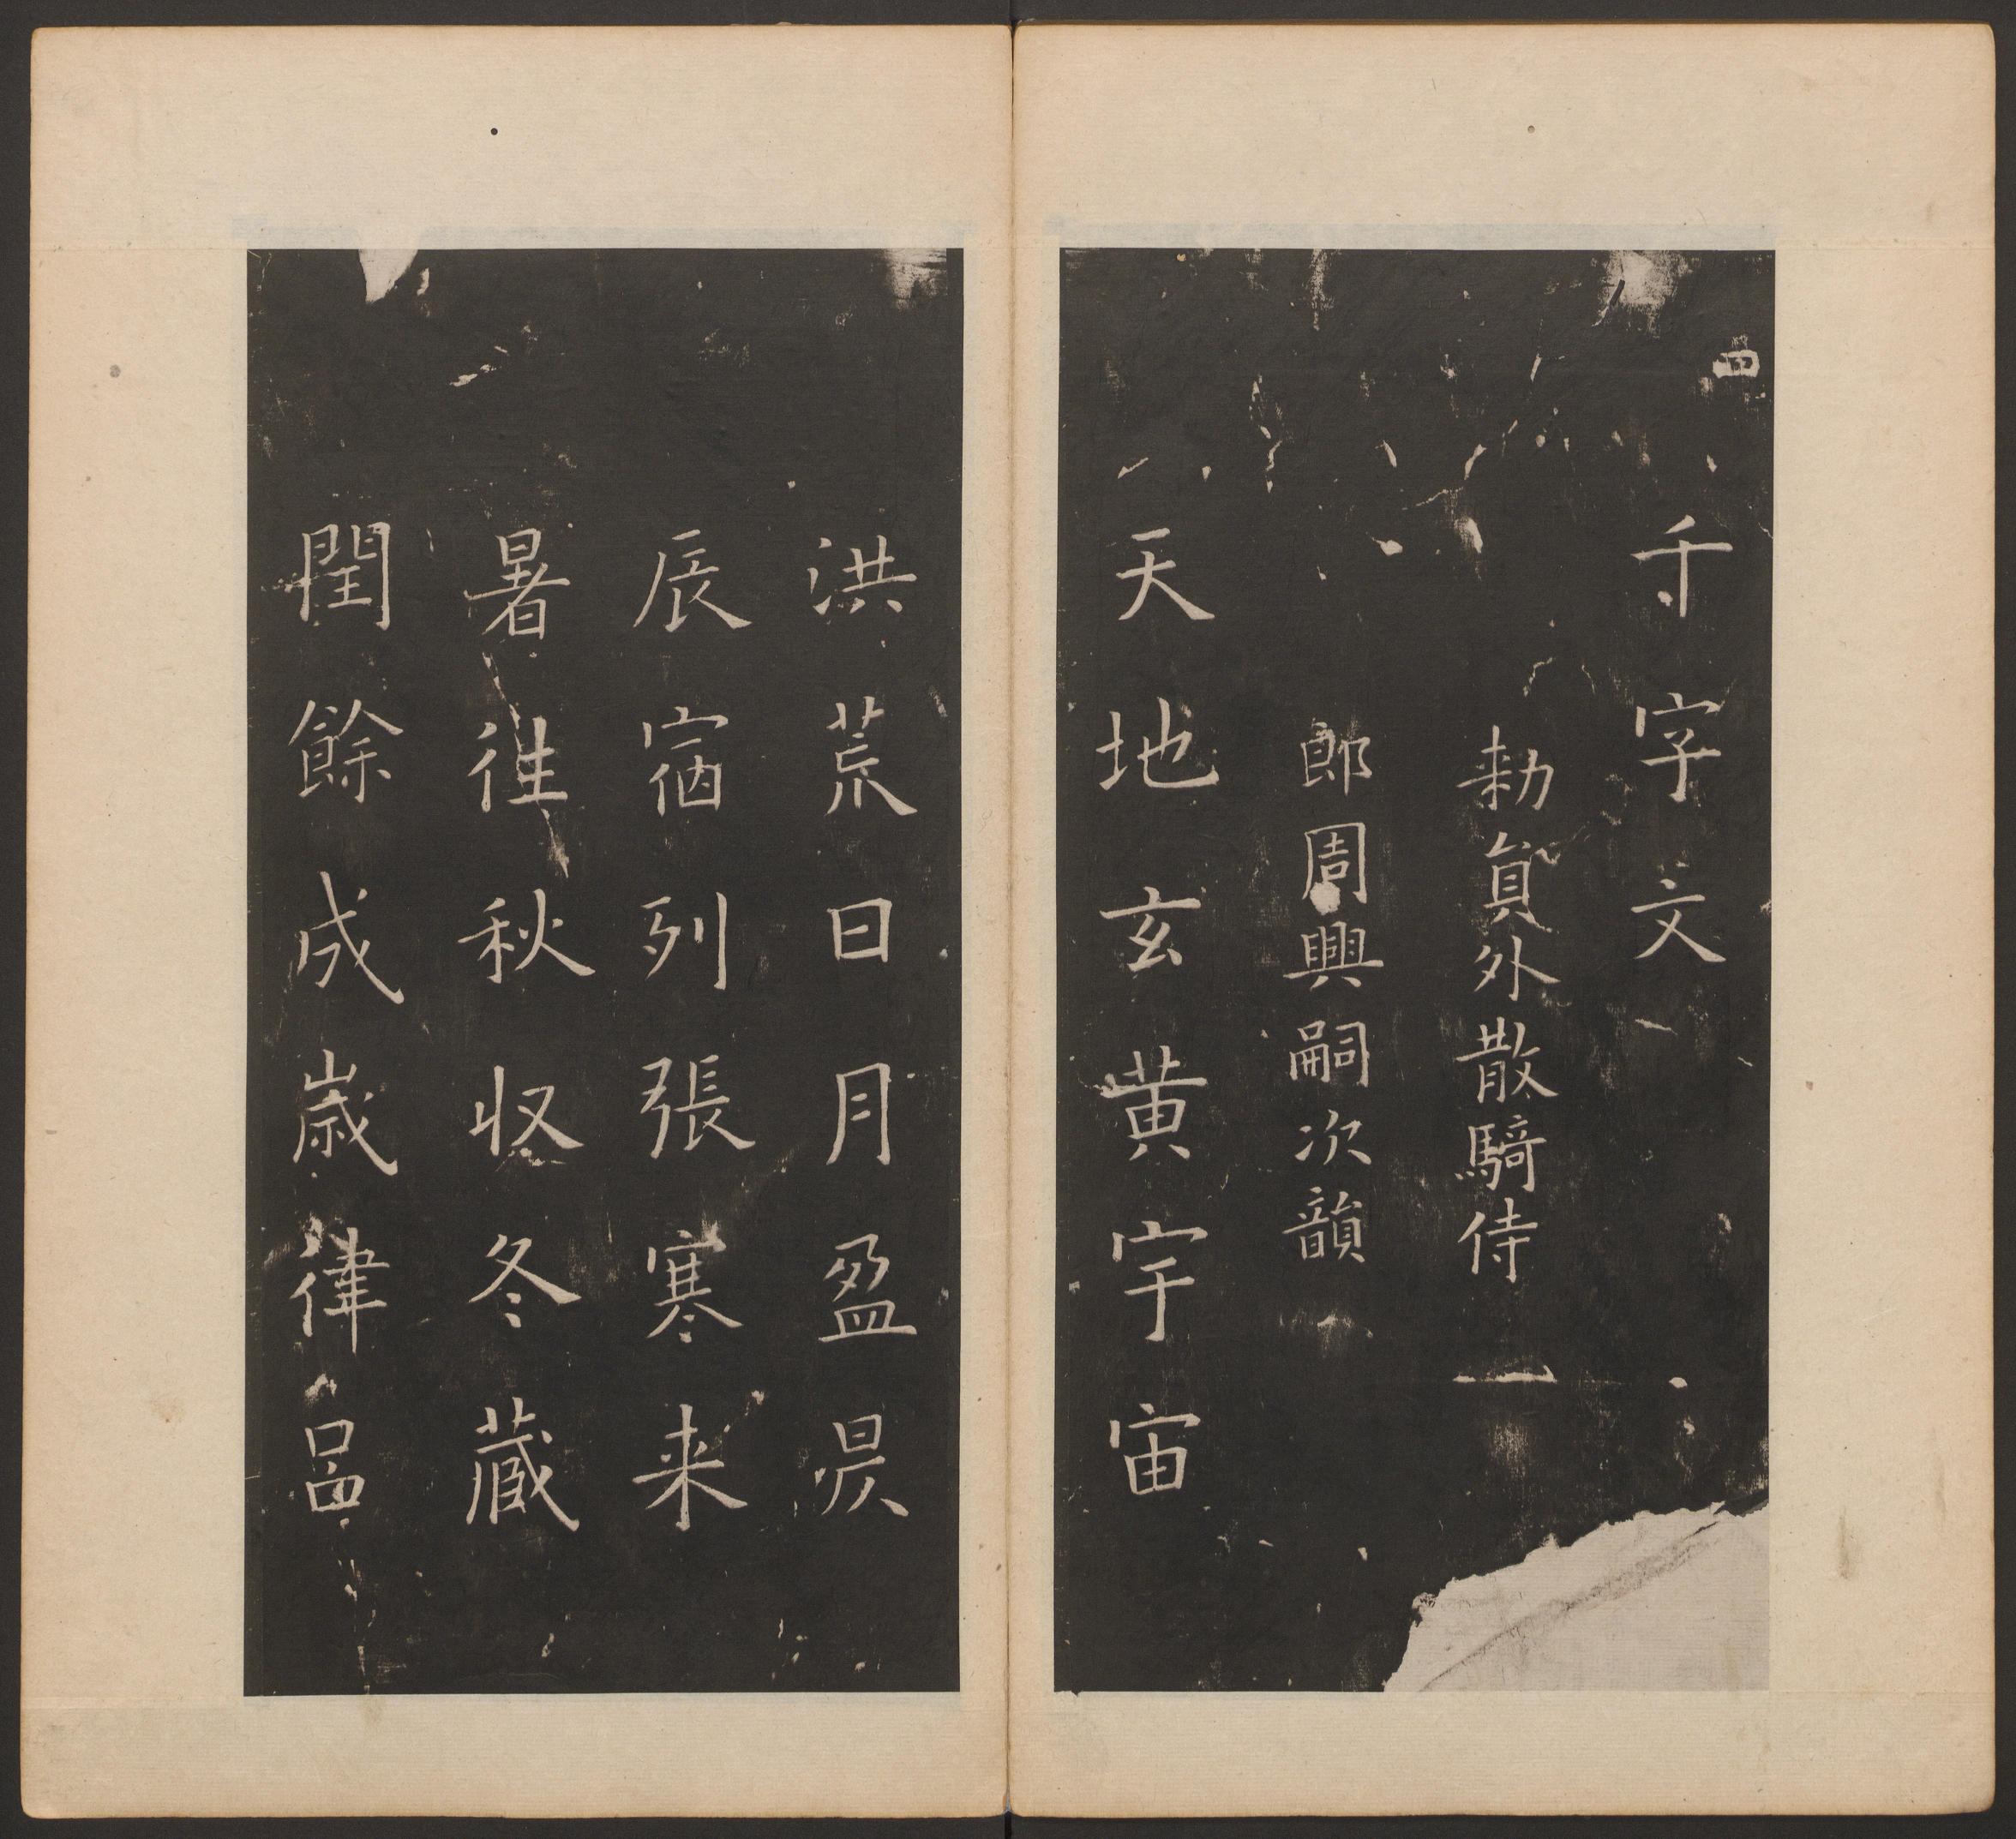 四
千字文
勑貟外散騎侍
郎周興嗣次韻
天地玄黄宇宙
洪荒日月盈昃
辰宿列張寒来
暑往秋收冬藏
閏餘成歲律吕